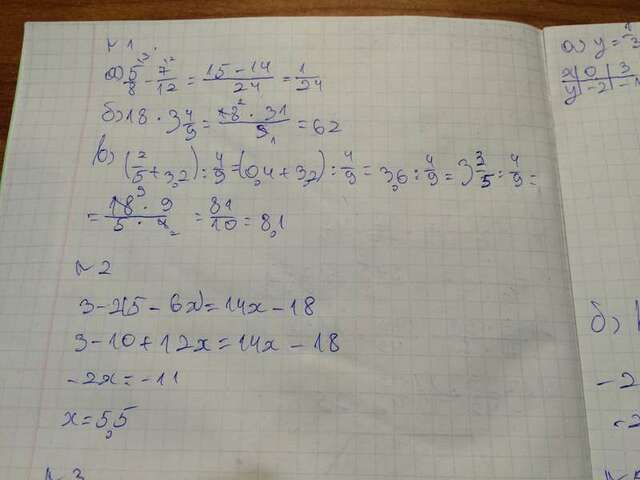 №1.
а) 5/8 - 7/12 = (15-14)/24 = 1/24
б) 18 · 3 4/9 = (18 · 31)/9 = 62
в) (2/5 + 3,2) : 4/9 = (0,4 + 3,2) : 4/9 = 3,6 : 4/9 = 3 3/5 : 4/9 =
= (18 · 9)/(5 · 4) = 81/10 = 8,1
№2
3-2(5 - 6x) = 14x - 18
3-10+12x = 14x - 18
-2x = -11
x = 5,5
№3
а) y =
x 0 3
y -2 -1
б)
-2
-2